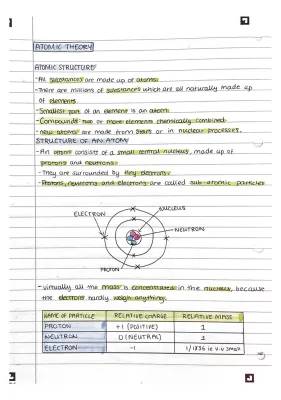 ATOMIC THEORY
ATOMIC STRUCTURE
-All substances are made up of atoms.
-There are millions of substances which are all naturally made up
of elements.
-Smallest part of an element is an atom.
-Compounds: two or more elements chemically combined.
-New atoms are made from stars or in nuclear processes.
STRUCTURE OF AN ATOM
-An atom consists of a small central nucleus, made up of
protons and neutrons.
-They are surrounded by tiny electrons.
-Protons, neutrons and electrons are called sub-atomic particles
ELECTRON
NUCLEUS
NEUTRON
PROTON
-virtually all the mass is concentrated in the nucleus, because
the electrons hardly weigh anything.
NAME OF PARTICLE RELATIVE CHARGE RELATIVE MASS
PROTON +1 (POSITIVE) 1
NEUTRON 0 (NEUTRAL) 1
ELECTRON -1 1/1836 ie v.v small